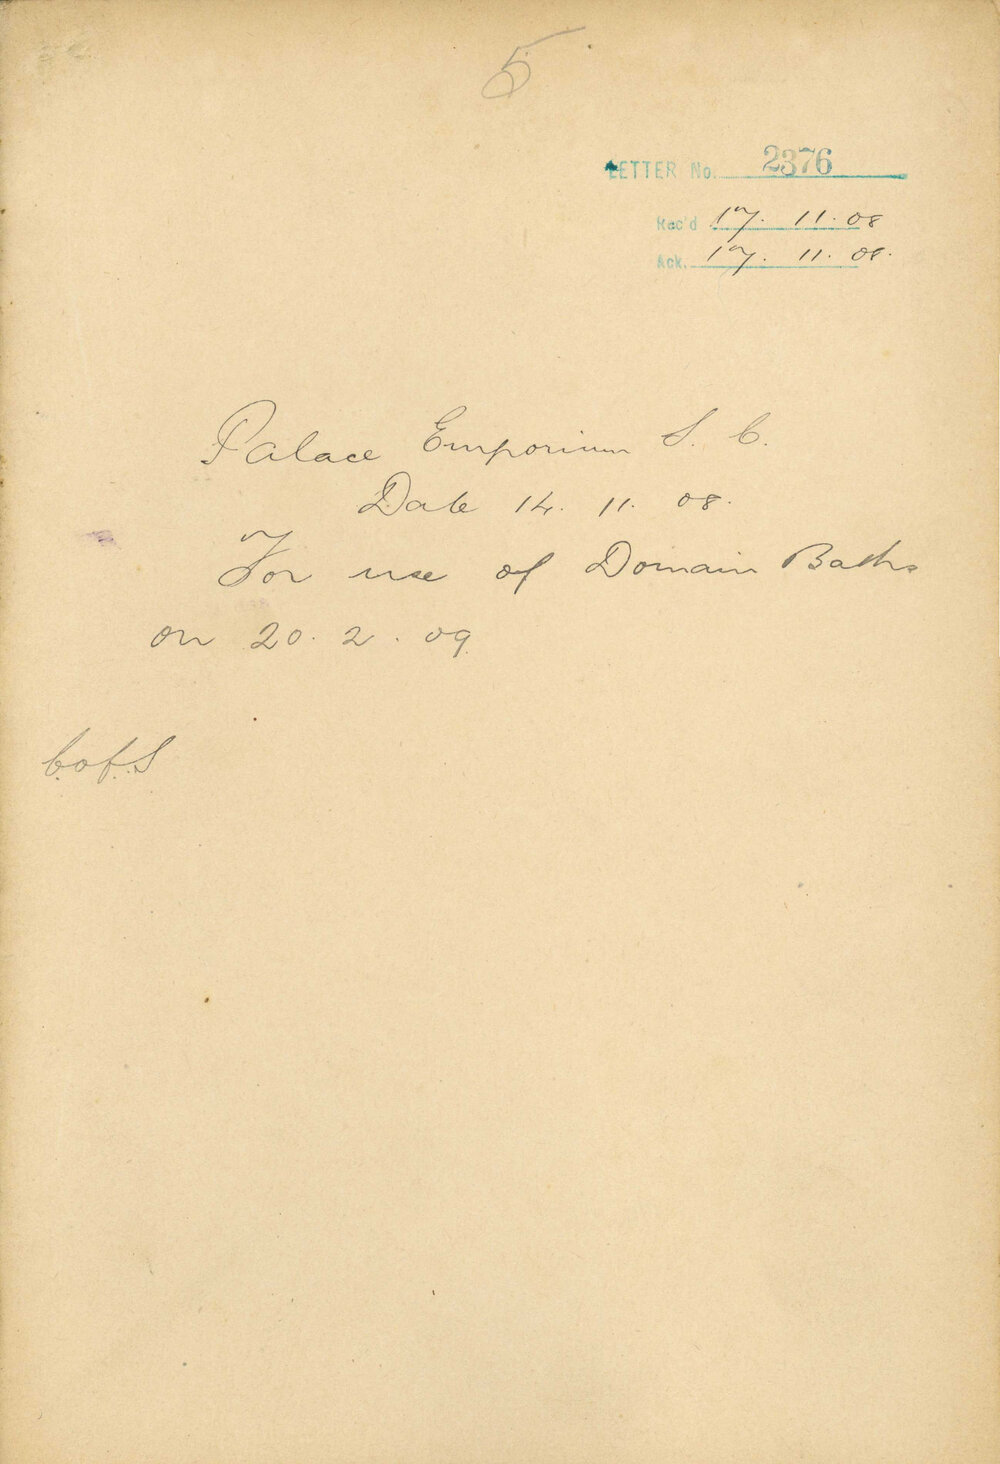 5
LETTER No. 2376
Rec'd 17. 11. 08
Ack. 17. 11. 08.
Palace Emporium S. C.
Date 14. 11. 08.
For use of Domain Baths
on 20. 2. 09
C. of. S